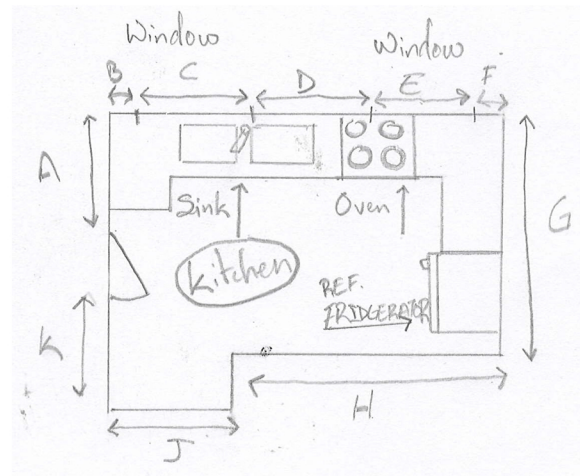 Window
Window
B C D E F
A
Sink
Oven
G
Kitchen
REF.
FRIDGERATOR
K
H
J